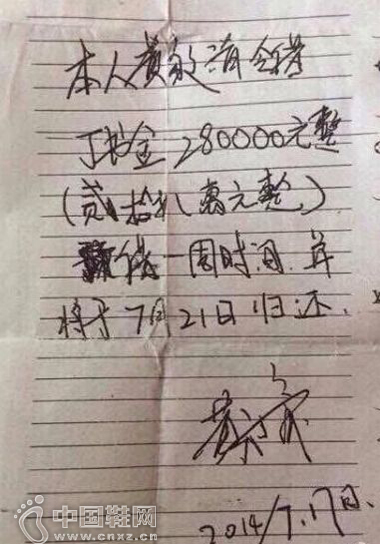 本人黄敬清今借
丁书金280000元整
(贰拾捌萬元整)
借一周时间并
将于7月21日归还.
2014/7.17日.
中国鞋网
www.cnxz.cn